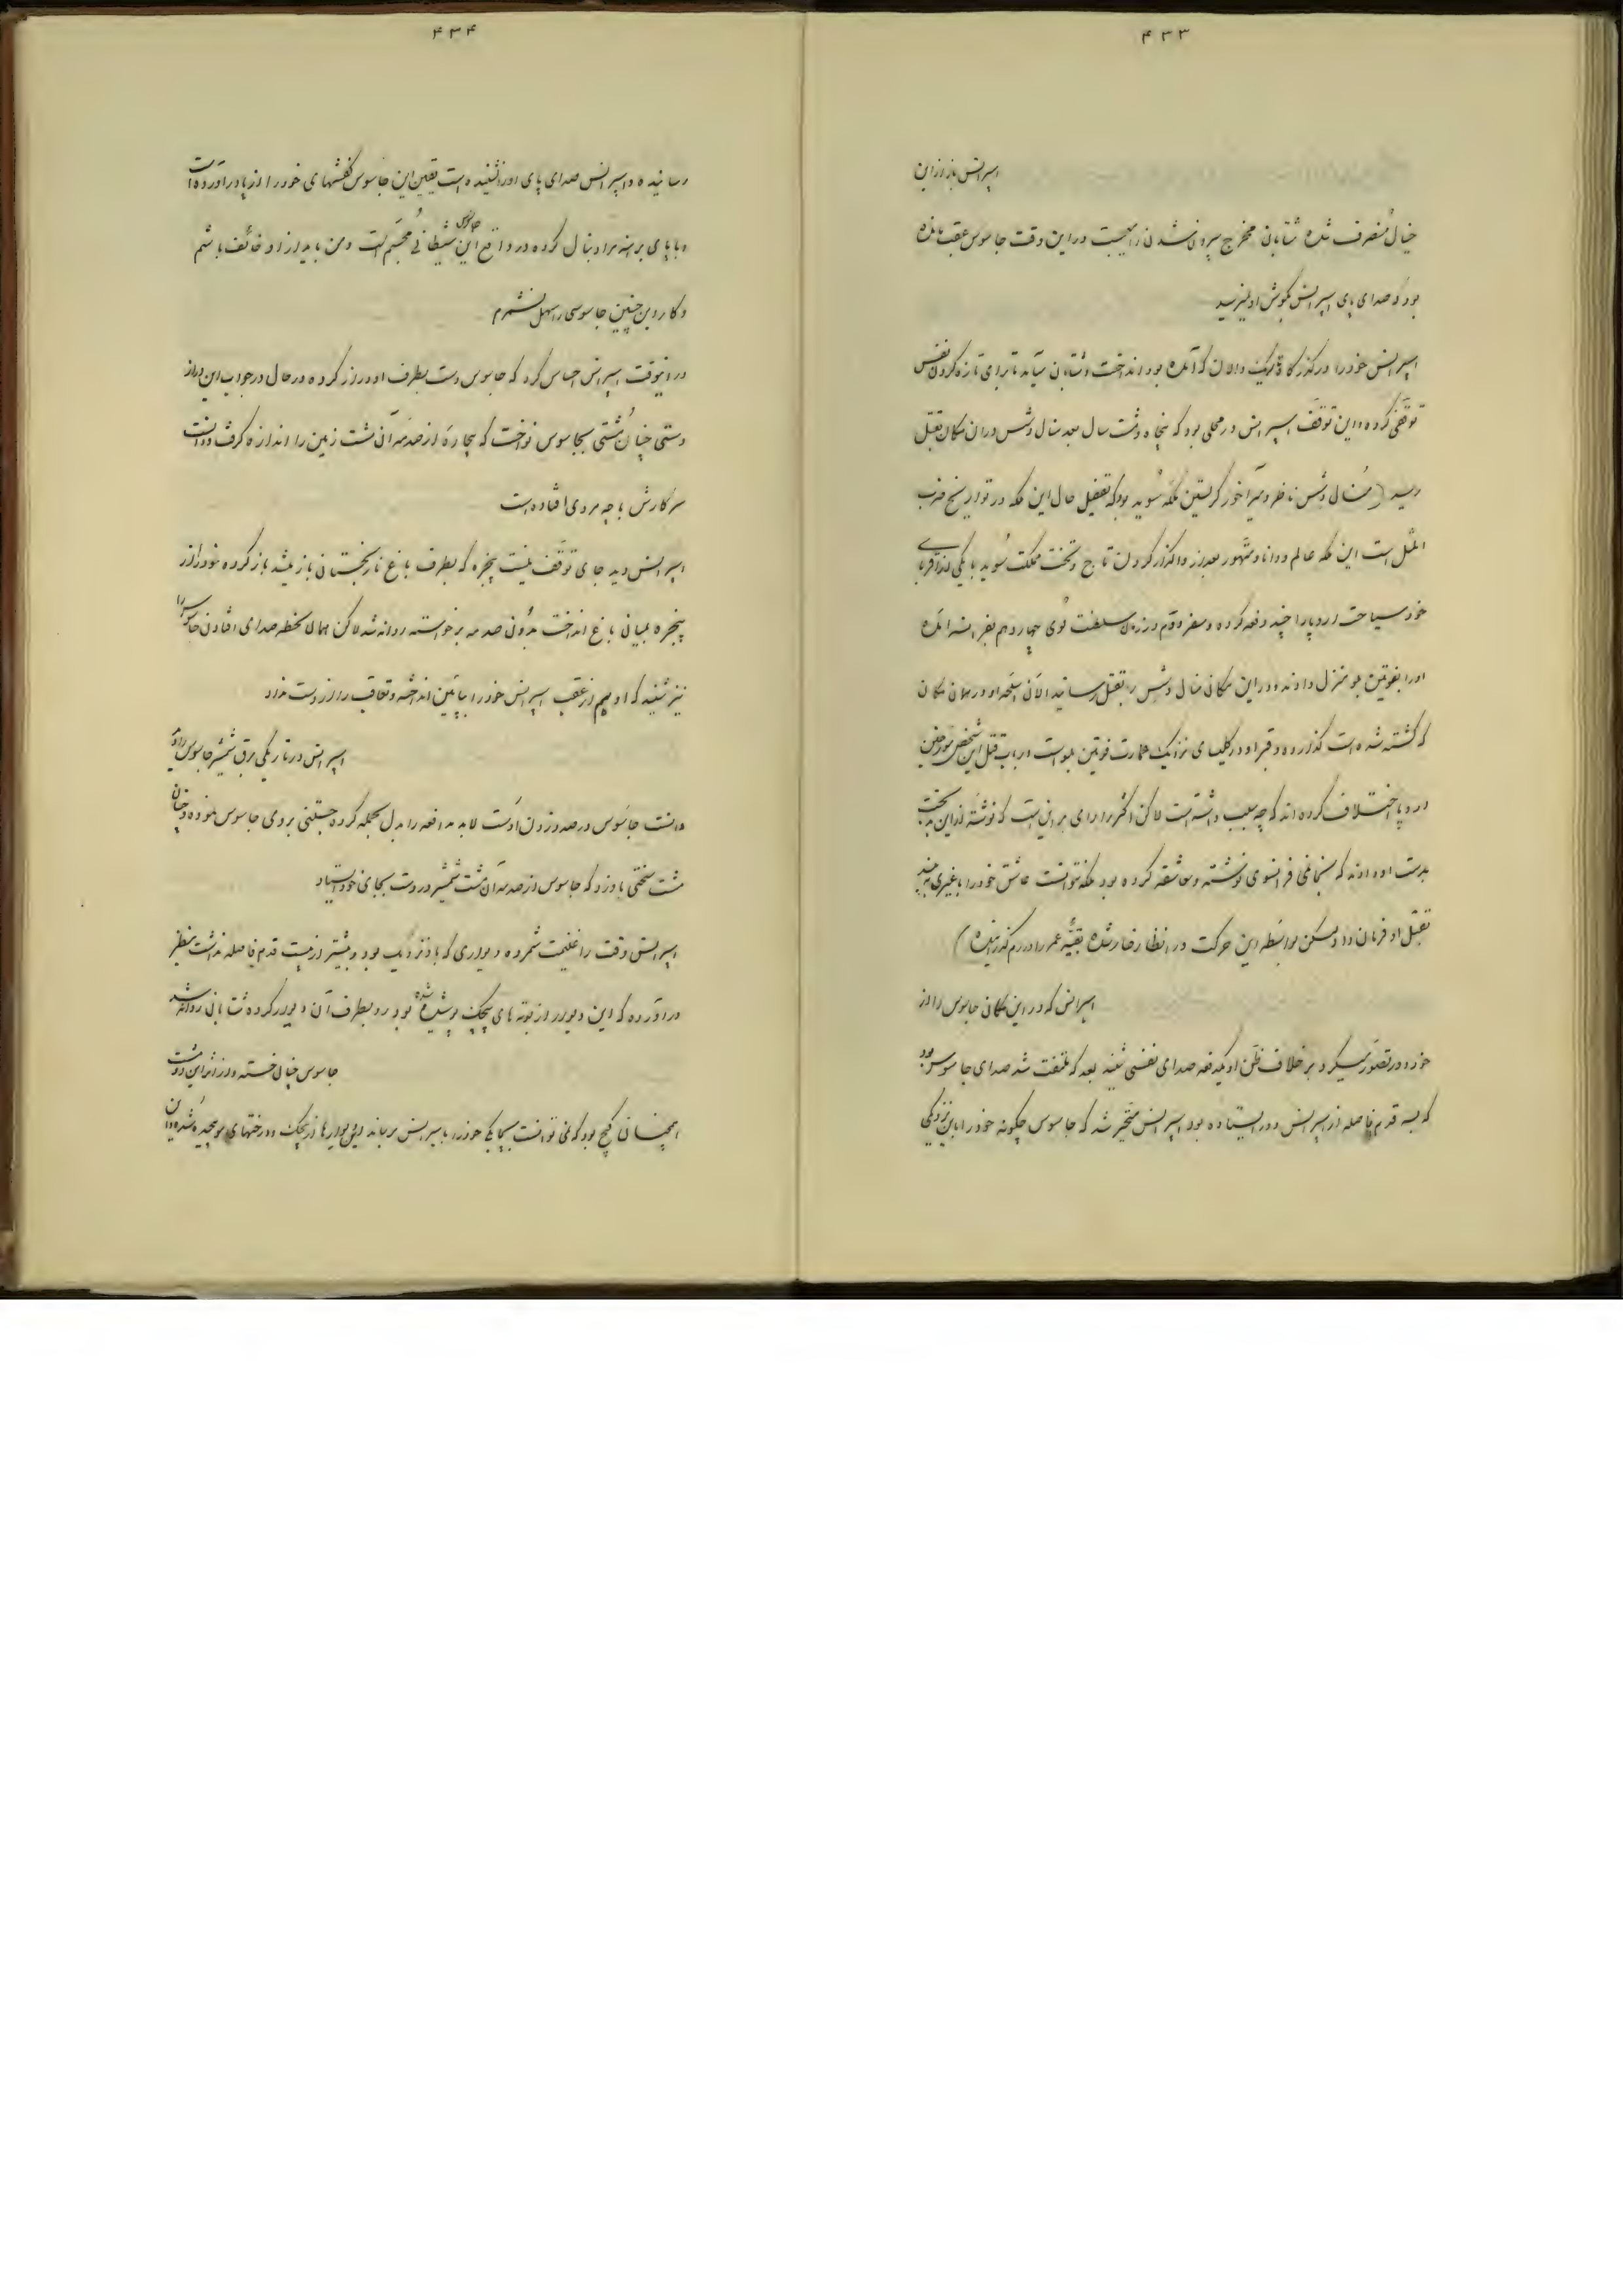 ۴۳۳
اسپرانس باز از این
خیال منصرف شده شتابان مخرج بیرون شدن را میجست در این وقت جاسوس عقب مانده
بود که صدای پای اسپرانس بگوش او نمیرسید
اسپرانس خود را در گذرگاه تاریک دالان که آمده بود انداخت و شتابان میآمد تا برای تازه کردن نفس
توقفی کرده و این توقف اسپرانس در محلی بود که پنجاه و شت سال بعد منال دشس در آن مکان بقتل
رسید (منال دشس ناظر و میرآخور کریستین ملکه سوید بود که تفصیل حال این ملکه در تواریخ ضرب
المثل است این ملکه عالم و دانا و مشهور بعد از واگذار کردن تاج و تخت مملکت سوید با یکی از اقربای
خود سیاحت اروپا را چند دفعه کرده و سفر دوم در زمان سلطنت لوی چهاردهم بفرانسه آمده
او را بفونتین بلو منزل دادند و در این مکان منال دشس را بقتل رسانید الآن اسلحه او در همان مکان
که کشته شده است گذارده و قبر او در کلیسای نزدیک عمارت فونتین بلو است در باب قتل این شخص مورخین
اروپا اختلاف کرده‌اند که چه سبب داشته است لاکن اکثر را رای بر این است که نوشته از این بدبخت
بدست آورده‌اند که بخانمی فرانسوی نوشته و معاشقه کرده بود ملکه نتوانست عاشق خود را با غیری به بیند
بقتل او فرمان داد و لیکن بواسطه این حرکت در انظار خار شده بقیّه عمر را در رم گذرانیده)
اسپرانس که در این مکان جاسوس را از
خود دور تصوّر میکرد بر خلاف ظن او یکدفعه صدای نفسی شنید بعد که ملتفت شد صدای جاسوس بود
که سه قدم فاصله از اسپرانس دور ایستاده بود اسپرانس متحیر شد که جاسوس چگونه خود را باین نزدیکی
۴۳۴
رسانیده و اسپرانس صدای پای او را نشنیده است یقین این جاسوس کفشهای خود را از پا در آورده است
و با پای برهنه مرا دنبال کرده در واقع این جاسوس شیطانی مجسم است و من باید از او خائف باشم
و کار این چنین جاسوسی را سهل نشمرم
در اینوقت اسپرانس احساس کرد که جاسوس دست بطرف او دراز کرده در حال در جواب این دراز
دستی چنان مشتی بجاسوس نواخت که بیچاره از صدمه آن مشت زمین را اندازه گرفت و دانست
سر کارش با چه مردی افتاده است
اسپرانس دید جای توقف نیست پنجره که بطرف باغ نارنجستان باز میشد باز کرده خود را از
پنجره بمیان باغ انداخت بدون صدمه برخواسته روانه شد لاکن همان لحظه صدای افتادن جاسوس را
نیز شنید که او هم از عقب اسپرانس خود را بپایین انداخته و تعاقب را از دست نداد
اسپرانس در تاریکی برق شمشیر جاسوس را دید
دانست جاسوس در صدد زدن اوست لابد مدافعه را بدل بحمله کرده جستنی بروی جاسوس نموده و چنان
مشت سختی باو زد که جاسوس از صدمه آن مشت شمشیر در دست بجای خود ایستاد
اسپرانس وقت را غنیمت شمرده دیواری که باو نزدیک بود و بیشتر از بیست قدم فاصله نداشت بنظر
در آورده که این دیوار از بوته های پیچک پوشیده شده بود رو بطرف آن دیوار کرده شتابان روانه شد
جاسوس چنان خسته و از اثر این دو مشت
آنچنان گیج بود که نمی توانست بچابکی خود را باسپرانس برساند این دیوارها از پیچک و درختهای مو پیچیده شده و آن